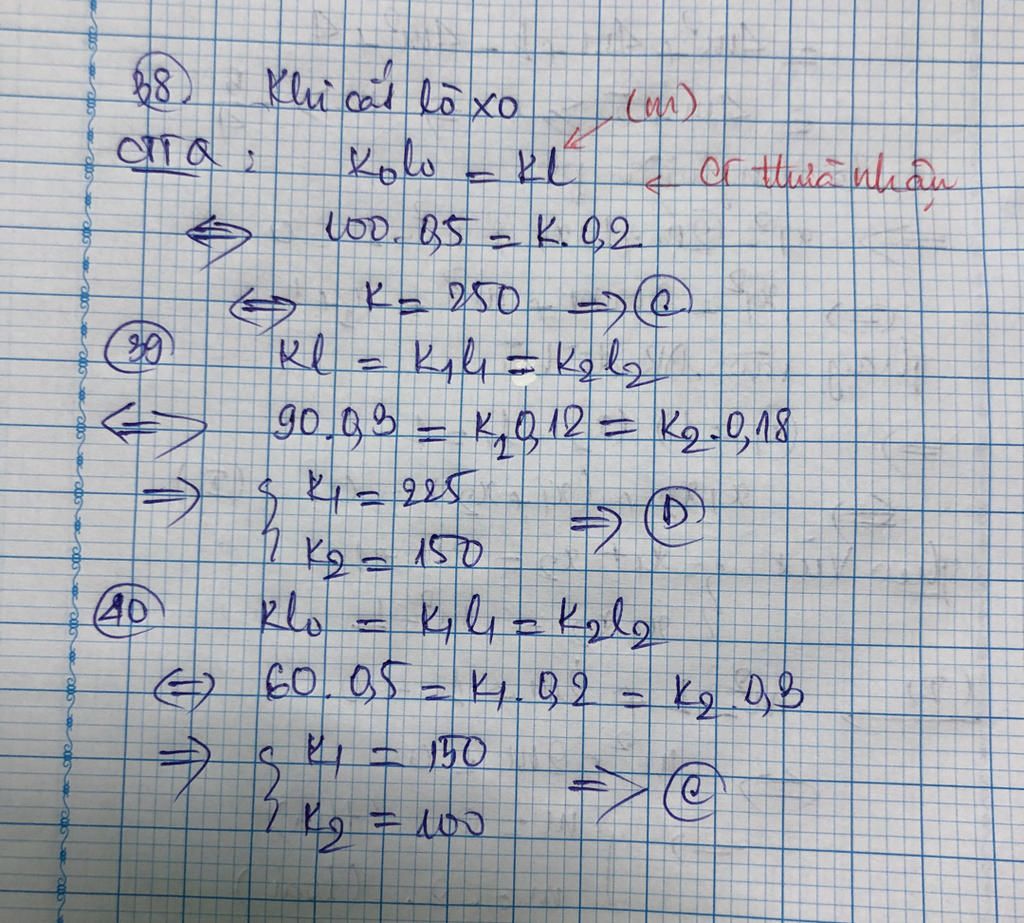 38) Khi cắt lò xo (m)
CTTQ: K₀l₀ = Kl ← CT thừa nhận
⇔ 100. 0,5 = K. 0,2
⇔ K = 250 ⇒ C
39 Kl = K₁l₁ = K₂l₂
⇔ 90. 0,3 = K₂0,12 = K₂. 0,18
⇒ { K₁ = 225
K₂ = 150 ⇒ D
40 Kl₀ = K₁l₁ = K₂l₂
⇔ 60. 0,5 = K₁. 0,2 = K₂. 0,3
⇒ { K₁ = 150
K₂ = 100 ⇒ C